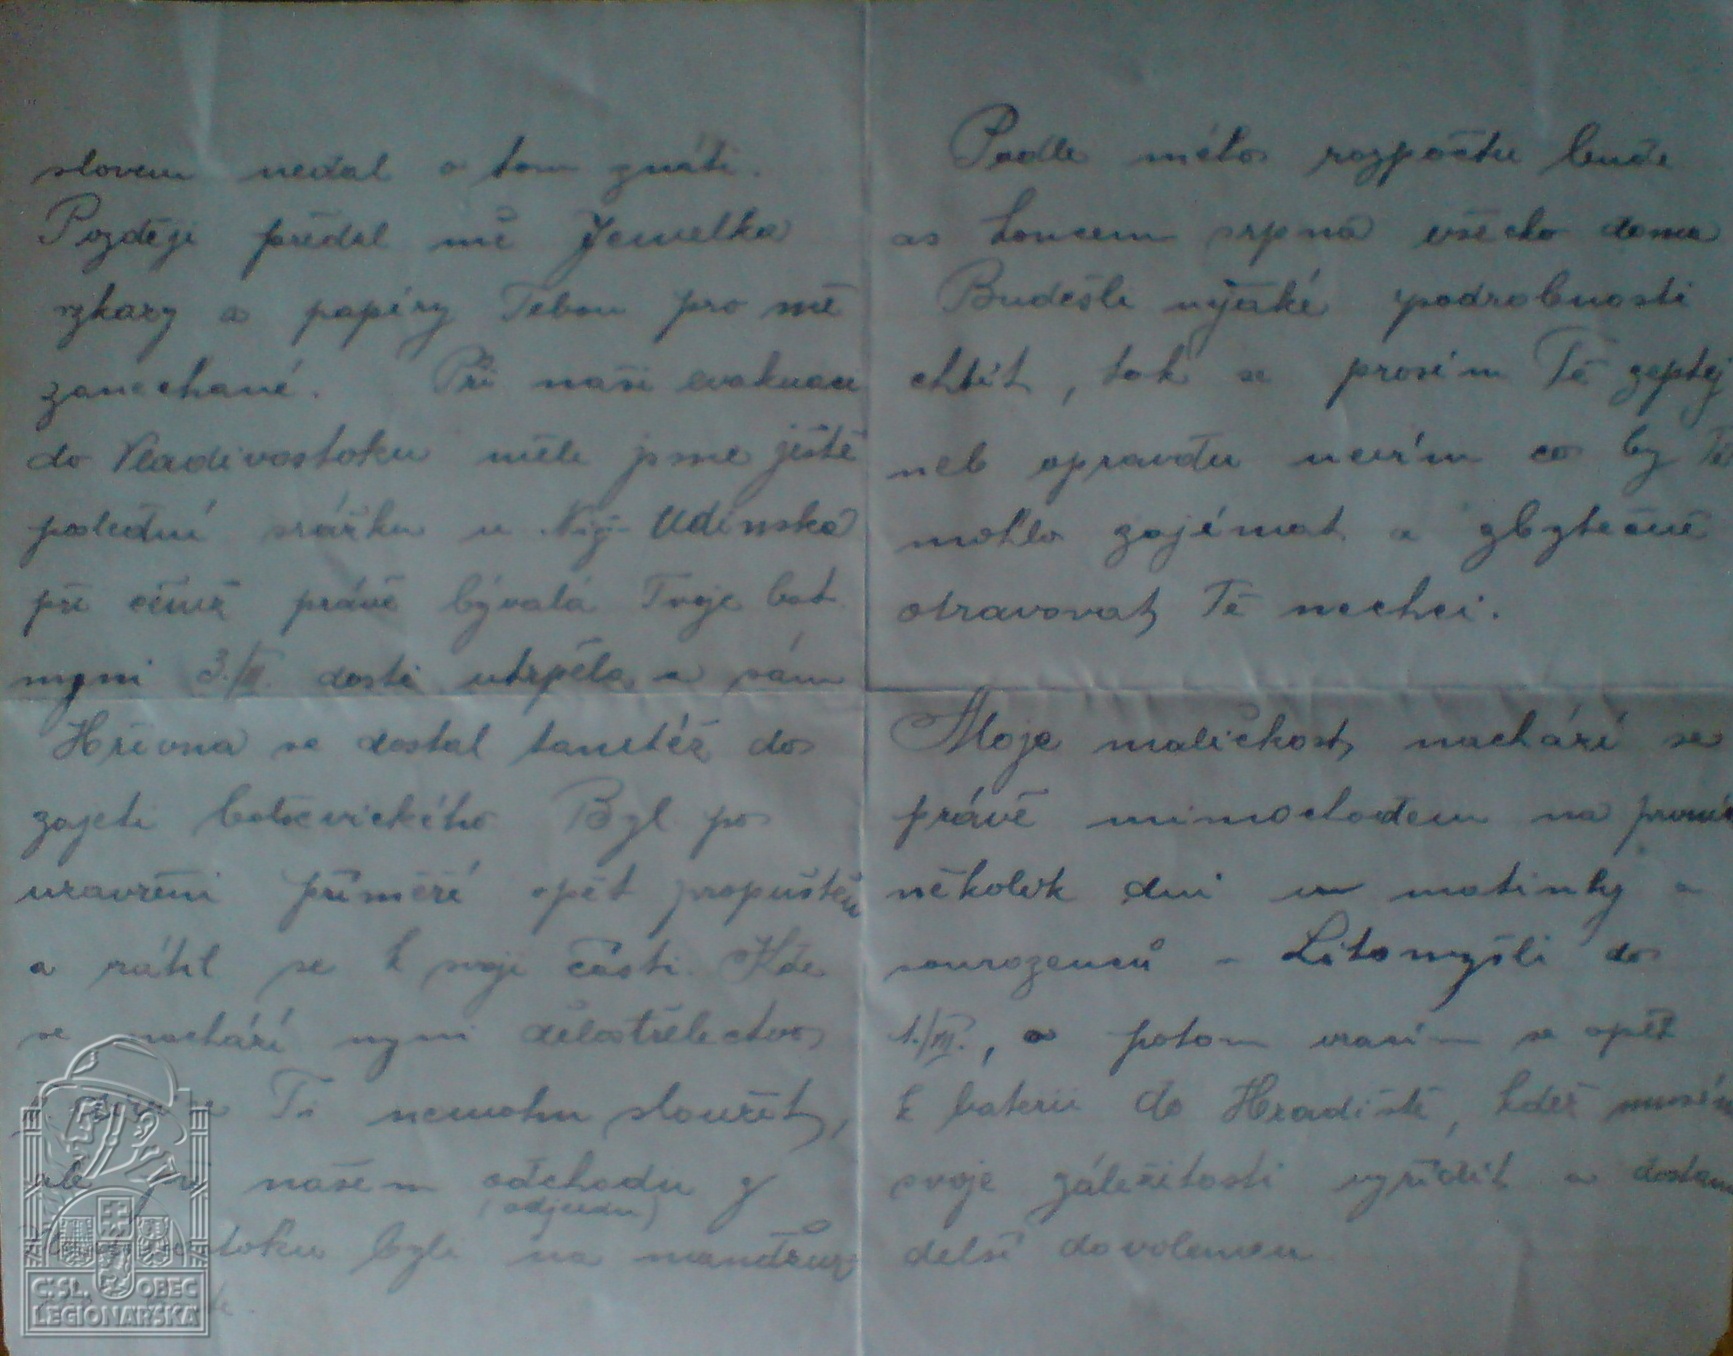 slovem nedal o tom znáti.
Později předal mě Jemelka
vzkazy a papíry Tebou pro mě
zanechané. Při naší evakuaci
do Vladivostoku měli jsme ještě
poslední srážku u Niž. Udinska
při čemž právě bývalá Tvoje bat.
nyní 3./II. dosti utrpěla a sám
Hřivna se dostal tamtéž do
zajetí bolševického Byl po
uzavření příměří opět propuštěn
a vrátil se k svojí části. Kde
se nachází nyní dělostřelectvo
Ti nemohu sloužit,
ale při našem odchodu z
(odjezdu)
Vladivostoku byli na mandžur
Podle mého rozpočtu bude
as koncem srpna všecko doma
Budešli nějaké podrobnosti
chtít, tak se prosím Tě zeptej
neb opravdu nevím co by Tě
mohlo zajímat a zbytečně
otravovat Tě nechci.
Moje maličkost nachází se
právě mimochodem na prvních
několik dní u matinky a
sourozenců - Litomyšli do
1./VII., a potom vracím se opět
k baterii do Hradiště, kdež musím
svoje záležitosti vyřídit a dostanu
delší dovolenou
Č.SL. OBEC
LEGIONÁŘSKÁ